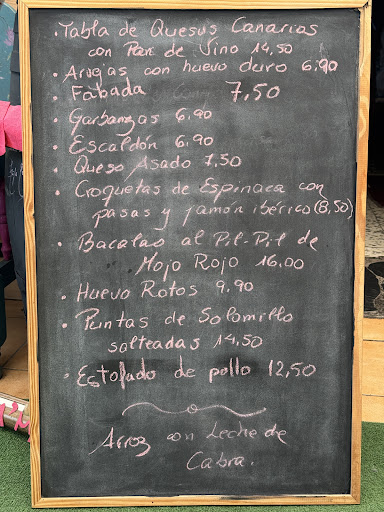 . Tabla de Quesus Canarias
con Pan de Vino 14,50
. Arvejas con huevo duro 6.90
. Fabada 7,50
. Garbanzas 6.90
. Escaldón 6.90
. Queso Asado 7,50
. Croquetas de Espinaca con
pasas y jamón ibérico (8,50)
. Bacalao al Pil-Pil de
Mojo Rojo 16.00
. Huevo Rotos 9.90
. Puntas de Solomillo
salteadas 14,50
. Estofado de pollo 12,50
Arroz con Leche de
Cabra.